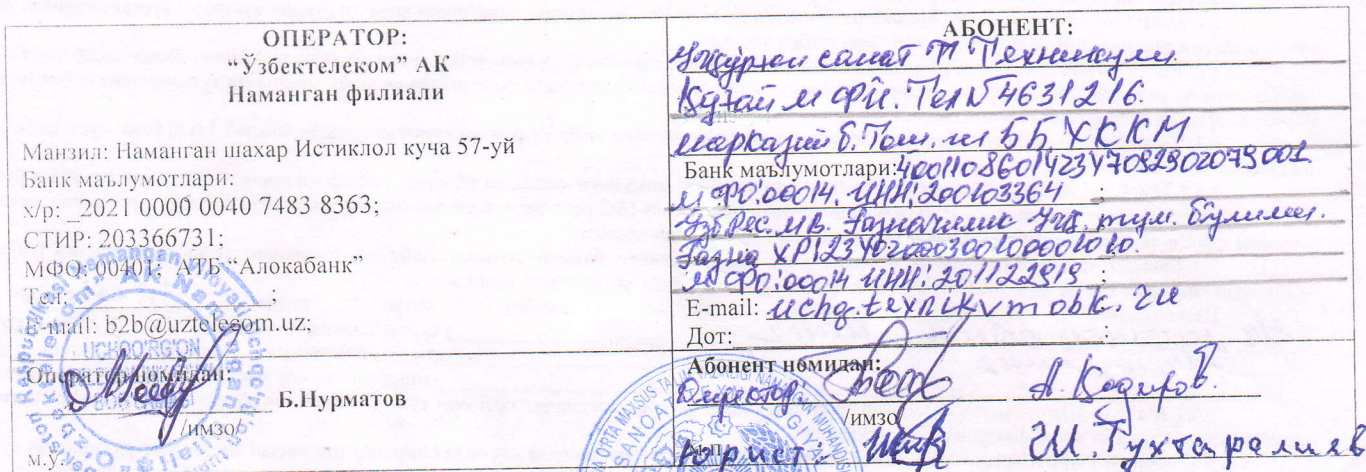 ОПЕРАТОР:
“Ўзбектелеком” АК
Наманган филиали
Манзил: Наманган шахар Истиклол куча 57-уй
Банк маълумотлари:
х/р: _2021 0000 0040 7483 8363;
СТИР: 203366731;
МФО: 00401; АТБ “Алокабанк”
Тел:
E-mail: b2b@uztelecom.uz;
Оператор номидан:
Б.Нурматов
/имзо/
м.ў.
АБОНЕНТ:
саноат Техникуми
Тел № 4631216.
марказий б. Тош. ш ББ ХККМ
Банк маълумотлари: 400110860142347092902079001
МФО: 00014. ИНН: 200203364
Ўзб Рес. МВ. Ғазначилик Учқ. тум. бўлими.
Ғазна ХР
МФО: 00014 ИНН: 201122919
E-mail: uchq.texnikum
Дот:
Абонент номидан:
Директор А. Кодиров.
/имзо/
Юрист: Ш. Тухтаралиев
UCHQO'RG'ON